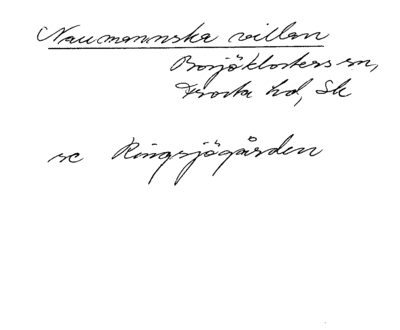 Naumannska villan
Bosjöklosters sn,
Frosta hd, Sk
se Ringsjögården